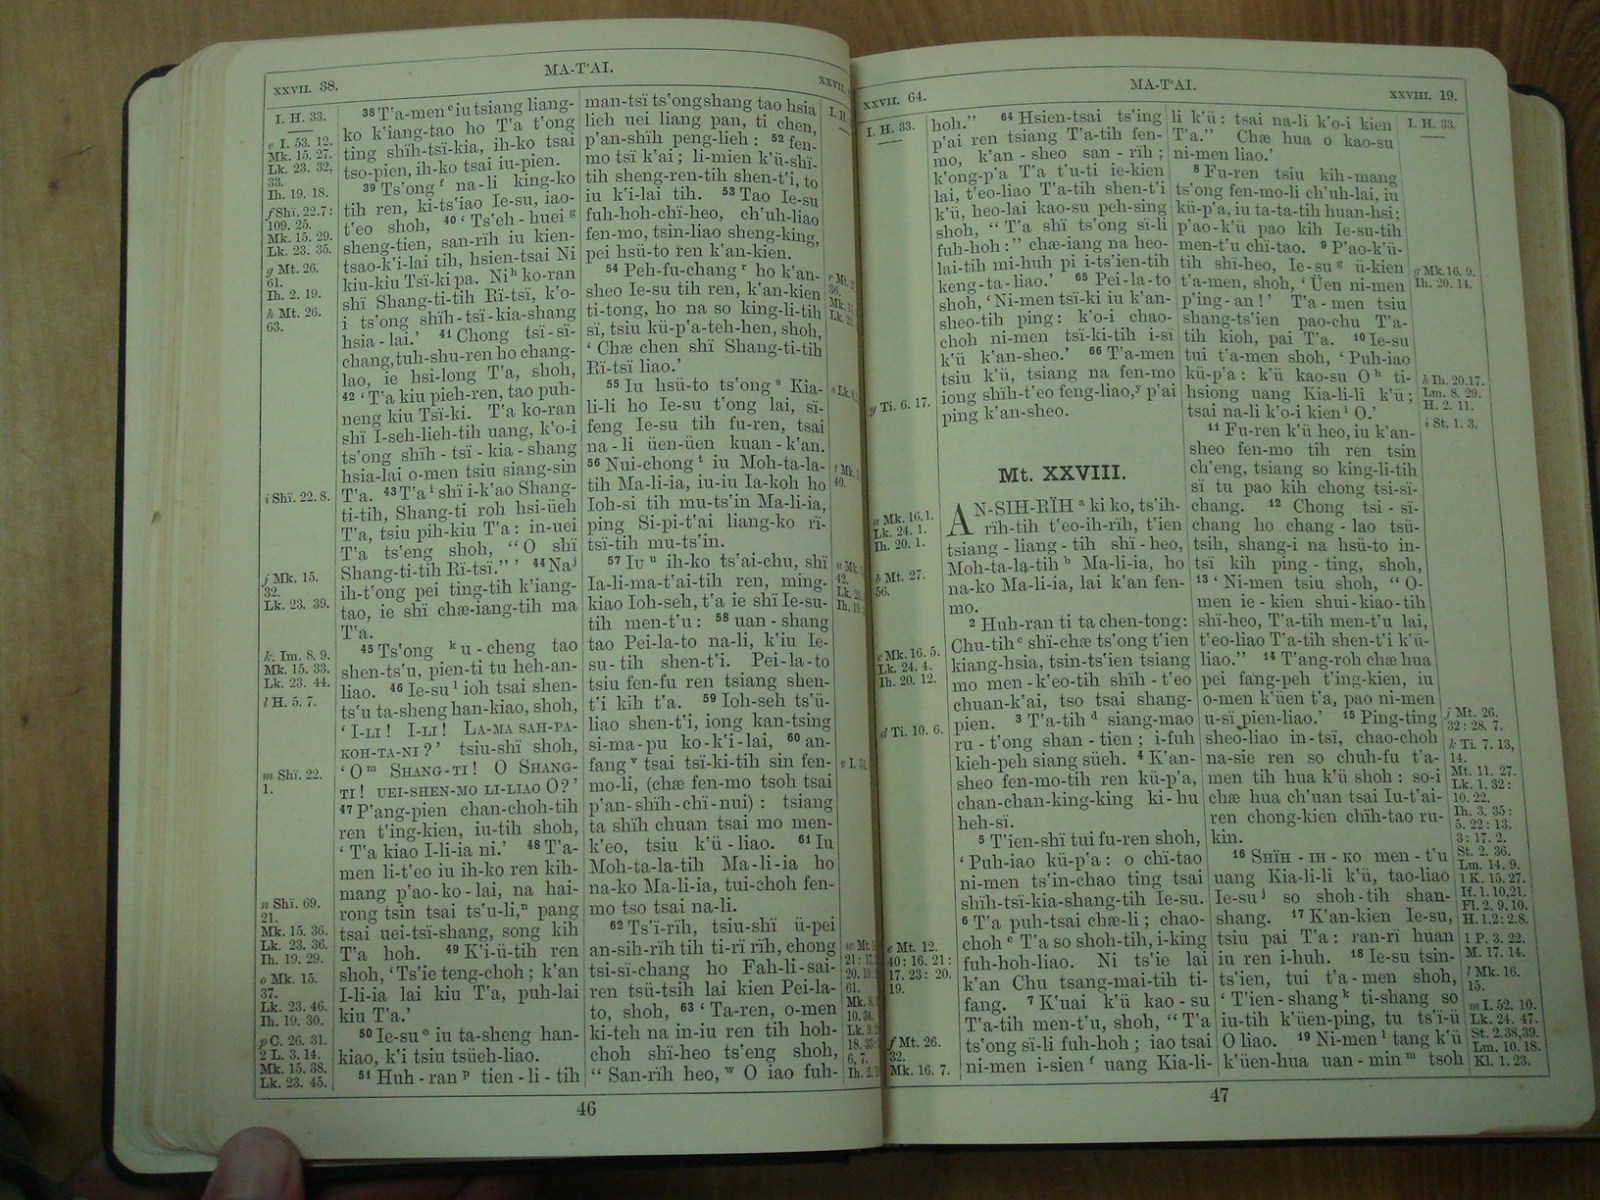 XXVII. 38.
MA-T'AI.
XXVII.
I. H. 33.
e I. 53. 12.
Mk. 15. 27.
Lk. 23. 32,
33.
Ih. 19. 18.
f Shï. 22.7:
109. 25.
Mk. 15. 29.
Lk. 23. 35.
g Mt. 26.
61.
Ih. 2. 19.
h Mt. 26.
63.
i Shï. 22. 8.
j Mk. 15.
32.
Lk. 23. 39.
k Im. 8. 9.
Mk. 15. 33.
Lk. 23. 44.
l H. 5. 7.
m Shï. 22.
1.
n Shï. 69.
21.
Mk. 15. 36.
Lk. 23. 36.
Ih. 19. 29.
o Mk. 15.
37.
Lk. 23. 46.
Ih. 19. 30.
p C. 26. 31.
2 L. 3. 14.
Mk. 15. 38.
Lk. 23. 45.
38 T'a-men e iu tsiang liang-
ko k'iang-tao ho T'a t'ong
ting shïh-tsï-kia, ih-ko tsai
tso-pien, ih-ko tsai iu-pien.
39 Ts'ong f na-li king-ko
tih ren, ki-ts'iao Ie-su, iao-
t'eo shoh, 40 ‘ Ts'eh-huei g
sheng-tien, san-rïh iu kien-
tsao-k'i-lai tih, hsien-tsai Ni
kiu-kiu Tsï-ki pa. Ni h ko-ran
shï Shang-ti-tih Rï-tsï, k'o-
i ts'ong shïh-tsï-kia-shang
hsia-lai.’ 41 Chong tsï-sï-
chang, tuh-shu-ren ho chang-
lao, ie hsi-long T'a, shoh,
42 ‘ T'a kiu pieh-ren, tao puh-
neng kiu Tsï-ki. T'a ko-ran
shï I-seh-lieh-tih uang, k'o-i
ts'ong shïh-tsï-kia-shang
hsia-lai o-men tsiu siang-sin
T'a. 43 T'a i shï i-k'ao Shang-
ti-tih, Shang-ti roh hsi-üeh
T'a, tsiu pih-kiu T'a: in-uei
T'a ts'eng shoh, “O shï
Shang-ti-tih Rï-tsï.” ’ 44 Na j
ih-t'ong pei ting-tih k'iang-
tao, ie shï chæ-iang-tih ma
T'a.
45 Ts'ong k u-cheng tao
shen-ts'u, pien-ti tu heh-an-
liao. 46 Ie-su l ioh tsai shen-
ts'u ta-sheng han-kiao, shoh,
‘ I-LI ! I-LI ! LA-MA SAH-PA-
KOH-TA-NI ?’ tsiu-shï shoh,
‘ O m SHANG-TI ! O SHANG-
TI ! UEI-SHEN-MO LI-LIAO O ?’
47 P'ang-pien chan-choh-tih
ren t'ing-kien, iu-tih shoh,
‘ T'a kiao I-li-ia ni.’ 48 T'a-
men li-t'eo iu ih-ko ren kih-
mang p'ao-ko-lai, na hai-
rong tsin tsai ts'u-li, n pang
tsai uei-tsï-shang, song kih
T'a hoh. 49 K'i-ü-tih ren
shoh, ‘ Ts'ie teng-choh ; k'an
I-li-ia lai kiu T'a, puh-lai
kiu T'a.’
50 Ie-su o iu ta-sheng han-
kiao, k'i tsiu tsüeh-liao.
51 Huh-ran p tien-li-tih
man-tsï ts'ong shang tao hsia
lieh uei liang pan, ti chen,
p'an-shïh peng-lieh : 52 fen-
mo tsï k'ai ; li-mien k'ü-shï-
tih sheng-ren-tih shen-t'i, to
iu k'i-lai tih. 53 Tao Ie-su
fuh-hoh-chï-heo, ch'uh-liao
fen-mo, tsin-liao sheng-king,
pei hsü-to ren k'an-kien.
54 Peh-fu-chang r ho k'an-
sheo Ie-su tih ren, k'an-kien
ti-tong, ho na so king-li-tih
sï, tsiu kü-p'a-teh-hen, shoh,
‘ Chæ chen shï Shang-ti-tih
Rï-tsï liao.’
55 Iu hsü-to ts'ong s Kia-
li-li ho Ie-su t'ong lai, sï-
feng Ie-su tih fu-ren, tsai
na-li üen-üen kuan-k'an.
56 Nui-chong t iu Moh-ta-la-
tih Ma-li-ia, iu-iu Ia-koh ho
Ioh-si tih mu-ts'in Ma-li-ia,
ping Si-pi-t'ai liang-ko rï-
tsï-tih mu-ts'in.
57 Iu u ih-ko ts'ai-chu, shï
Ia-li-ma-t'ai-tih ren, ming-
kiao Ioh-seh, t'a ie shï Ie-su-
tih men-t'u : 58 uan-shang
tao Pei-la-to na-li, k'iu Ie-
su-tih shen-t'i. Pei-la-to
tsiu fen-fu ren tsiang shen-
t'i kih t'a. 59 Ioh-seh ts'ü-
liao shen-t'i, iong kan-tsing
si-ma-pu ko-k'i-lai, 60 an-
fang v tsai tsï-ki-tih sin fen-
mo-li, (chæ fen-mo tsoh tsai
p'an-shïh-chï-nui) : tsiang
ta shïh chuan tsai mo men-
k'eo, tsiu k'ü-liao. 61 Iu
Moh-ta-la-tih Ma-li-ia ho
na-ko Ma-li-ia, tui-choh fen-
mo tso tsai na-li.
62 Ts'ï-rïh, tsiu-shï ü-pei
an-sih-rïh tih ti-rï rïh, chong
tsi-sï-chang ho Fah-li-sai-
ren tsü-tsih lai kien Pei-la-
to, shoh, 63 ‘ Ta-ren, o-men
ki-teh na in-iu ren tih hoh-
choh shï-heo ts'eng shoh,
“ San-rïh heo, w O iao fuh-
46
XXVII. 64.
MA-T'AI.
XXVIII. 19.
I. H. 33.
y Ti. 6. 17.
a Mk. 16.1.
Lk. 24. 1.
Ih. 20. 1.
b Mt. 27.
56.
c Mk. 16. 5.
Lk. 24. 4.
Ih. 20. 12.
d Ti. 10. 6.
e Mt. 12.
40: 16. 21:
17. 23: 20.
19.
f Mt. 26.
32.
Mk. 16. 7.
hoh.” 64 Hsien-tsai ts'ing
p'ai ren tsiang T'a-tih fen-
mo, k'an-sheo san-rïh ;
k'ong-p'a T'a t'u-ti ie-kien
lai, t'eo-liao T'a-tih shen-t'i
k'ü, heo-lai kao-su peh-sing
shoh, “ T'a shï ts'ong sï-li
fuh-hoh :” chæ-iang na heo-
lai-tih mi-huh pi i-ts'ien-tih
keng-ta-liao.’ 65 Pei-la-to
shoh, ‘ Ni-men tsï-ki iu k'an-
sheo-tih ping : k'o-i chao-
choh ni-men tsï-ki-tih i-sï
k'ü k'an-sheo.’ 66 T'a-men
tsiu k'ü, tsiang na fen-mo
iong shïh-t'eo feng-liao, y p'ai
ping k'an-sheo.
Mt. XXVIII.
AN-SIH-RÏH a ki ko, ts'ih-
rïh-tih t'eo-ih-rïh, t'ien
tsiang-liang-tih shï-heo,
Moh-ta-la-tih b Ma-li-ia, ho
na-ko Ma-li-ia, lai k'an fen-
mo.
2 Huh-ran ti ta chen-tong:
Chu-tih c shï-chæ ts'ong t'ien
kiang-hsia, tsin-ts'ien tsiang
mo men-k'eo-tih shïh-t'eo
chuan-k'ai, tso tsai shang-
pien. 3 T'a-tih d siang-mao
ru-t'ong shan-tien ; i-fuh
kieh-peh siang süeh. 4 K'an-
sheo fen-mo-tih ren kü-p'a,
chan-chan-king-king ki-hu
heh-sï.
5 T'ien-shï tui fu-ren shoh,
‘ Puh-iao kü-p'a : o chï-tao
ni-men ts'in-chao ting tsai
shïh-tsï-kia-shang-tih Ie-su.
6 T'a puh-tsai chæ-li ; chao-
choh e T'a so shoh-tih, i-king
fuh-hoh-liao. Ni ts'ie lai
k'an Chu tsang-mai-tih ti-
fang. 7 K'uai k'ü kao-su
T'a-tih men-t'u, shoh, “ T'a
ts'ong sï-li fuh-hoh ; iao tsai
ni-men i-sien f uang Kia-li-
li k'ü : tsai na-li k'o-i kien
T'a.” Chæ hua o kao-su
ni-men liao.’
8 Fu-ren tsiu kih-mang
ts'ong fen-mo-li ch'uh-lai, iu
kü-p'a, iu ta-ta-tih huan-hsi;
p'ao-k'ü pao kih Ie-su-tih
men-t'u chï-tao. 9 P'ao-k'ü-
tih shï-heo, Ie-su g ü-kien
t'a-men, shoh, ‘ Üen ni-men
p'ing-an !’ T'a-men tsiu
shang-ts'ien pao-chu T'a-
tih kioh, pai T'a. 10 Ie-su
tui t'a-men shoh, ‘ Puh-iao
kü-p'a : k'ü kao-su O h ti-
hsiong uang Kia-li-li k'ü ;
tsai na-li k'o-i kien i O.’
11 Fu-ren k'ü heo, iu k'an-
sheo fen-mo tih ren tsin
ch'eng, tsiang so king-li-tih
sï tu pao kih chong tsi-sï-
chang. 12 Chong tsi-sï-
chang ho chang-lao tsü-
tsih, shang-i na hsü-to in-
tsï kih ping-ting, shoh,
13 ‘ Ni-men tsiu shoh, “ O-
men ie-kien shui-kiao-tih
shï-heo, T'a-tih men-t'u lai,
t'eo-liao T'a-tih shen-t'i k'ü-
liao.” 14 T'ang-roh chæ hua
pei fang-peh t'ing-kien, iu
o-men k'üen t'a, pao ni-men
u-sï pien-liao.’ 15 Ping-ting
sheo-liao in-tsï, chao-choh
na-sie ren so chuh-fu t'a-
men tih hua k'ü shoh : so-i
chæ hua ch'uan tsai Iu-t'ai-
ren chong-kien chïh-tao ru-
kin.
16 SHÏH-IH-KO men-t'u
uang Kia-li-li k'ü, tao-liao
Ie-su j so shoh-tih shan-
shang. 17 K'an-kien Ie-su,
tsiu pai T'a : ran-rï huan
iu ren i-huh. 18 Ie-su tsin-
ts'ien, tui t'a-men shoh,
‘ T'ien-shang k ti-shang so
iu-tih k'üen-ping, tu ts'ï-ü
O liao. 19 Ni-men l tang k'ü
k'üen-hua uan-min m tsoh
I. H. 33.
g Mk. 16. 9.
Ih. 20. 14.
h Ih. 20.17.
Lm. 8. 29.
H. 2. 11.
i St. 1. 3.
j Mt. 26.
32 : 28. 7.
k Ti. 7. 13,
14.
Mt. 11. 27.
Lk. 1. 32 :
10. 22.
Ih. 3. 35 :
5. 22 : 13.
3 : 17. 2.
St. 2. 36.
Lm. 14. 9.
1 K. 15. 27.
If. 1. 10,21.
Fl. 2. 9, 10.
H. 1.2 : 2.8.
1 P. 3. 22.
M. 17. 14.
l Mk. 16.
15.
m I. 52. 10.
Lk. 24. 47.
St. 2.38,39.
Lm. 10. 18.
Kl. 1. 23.
47